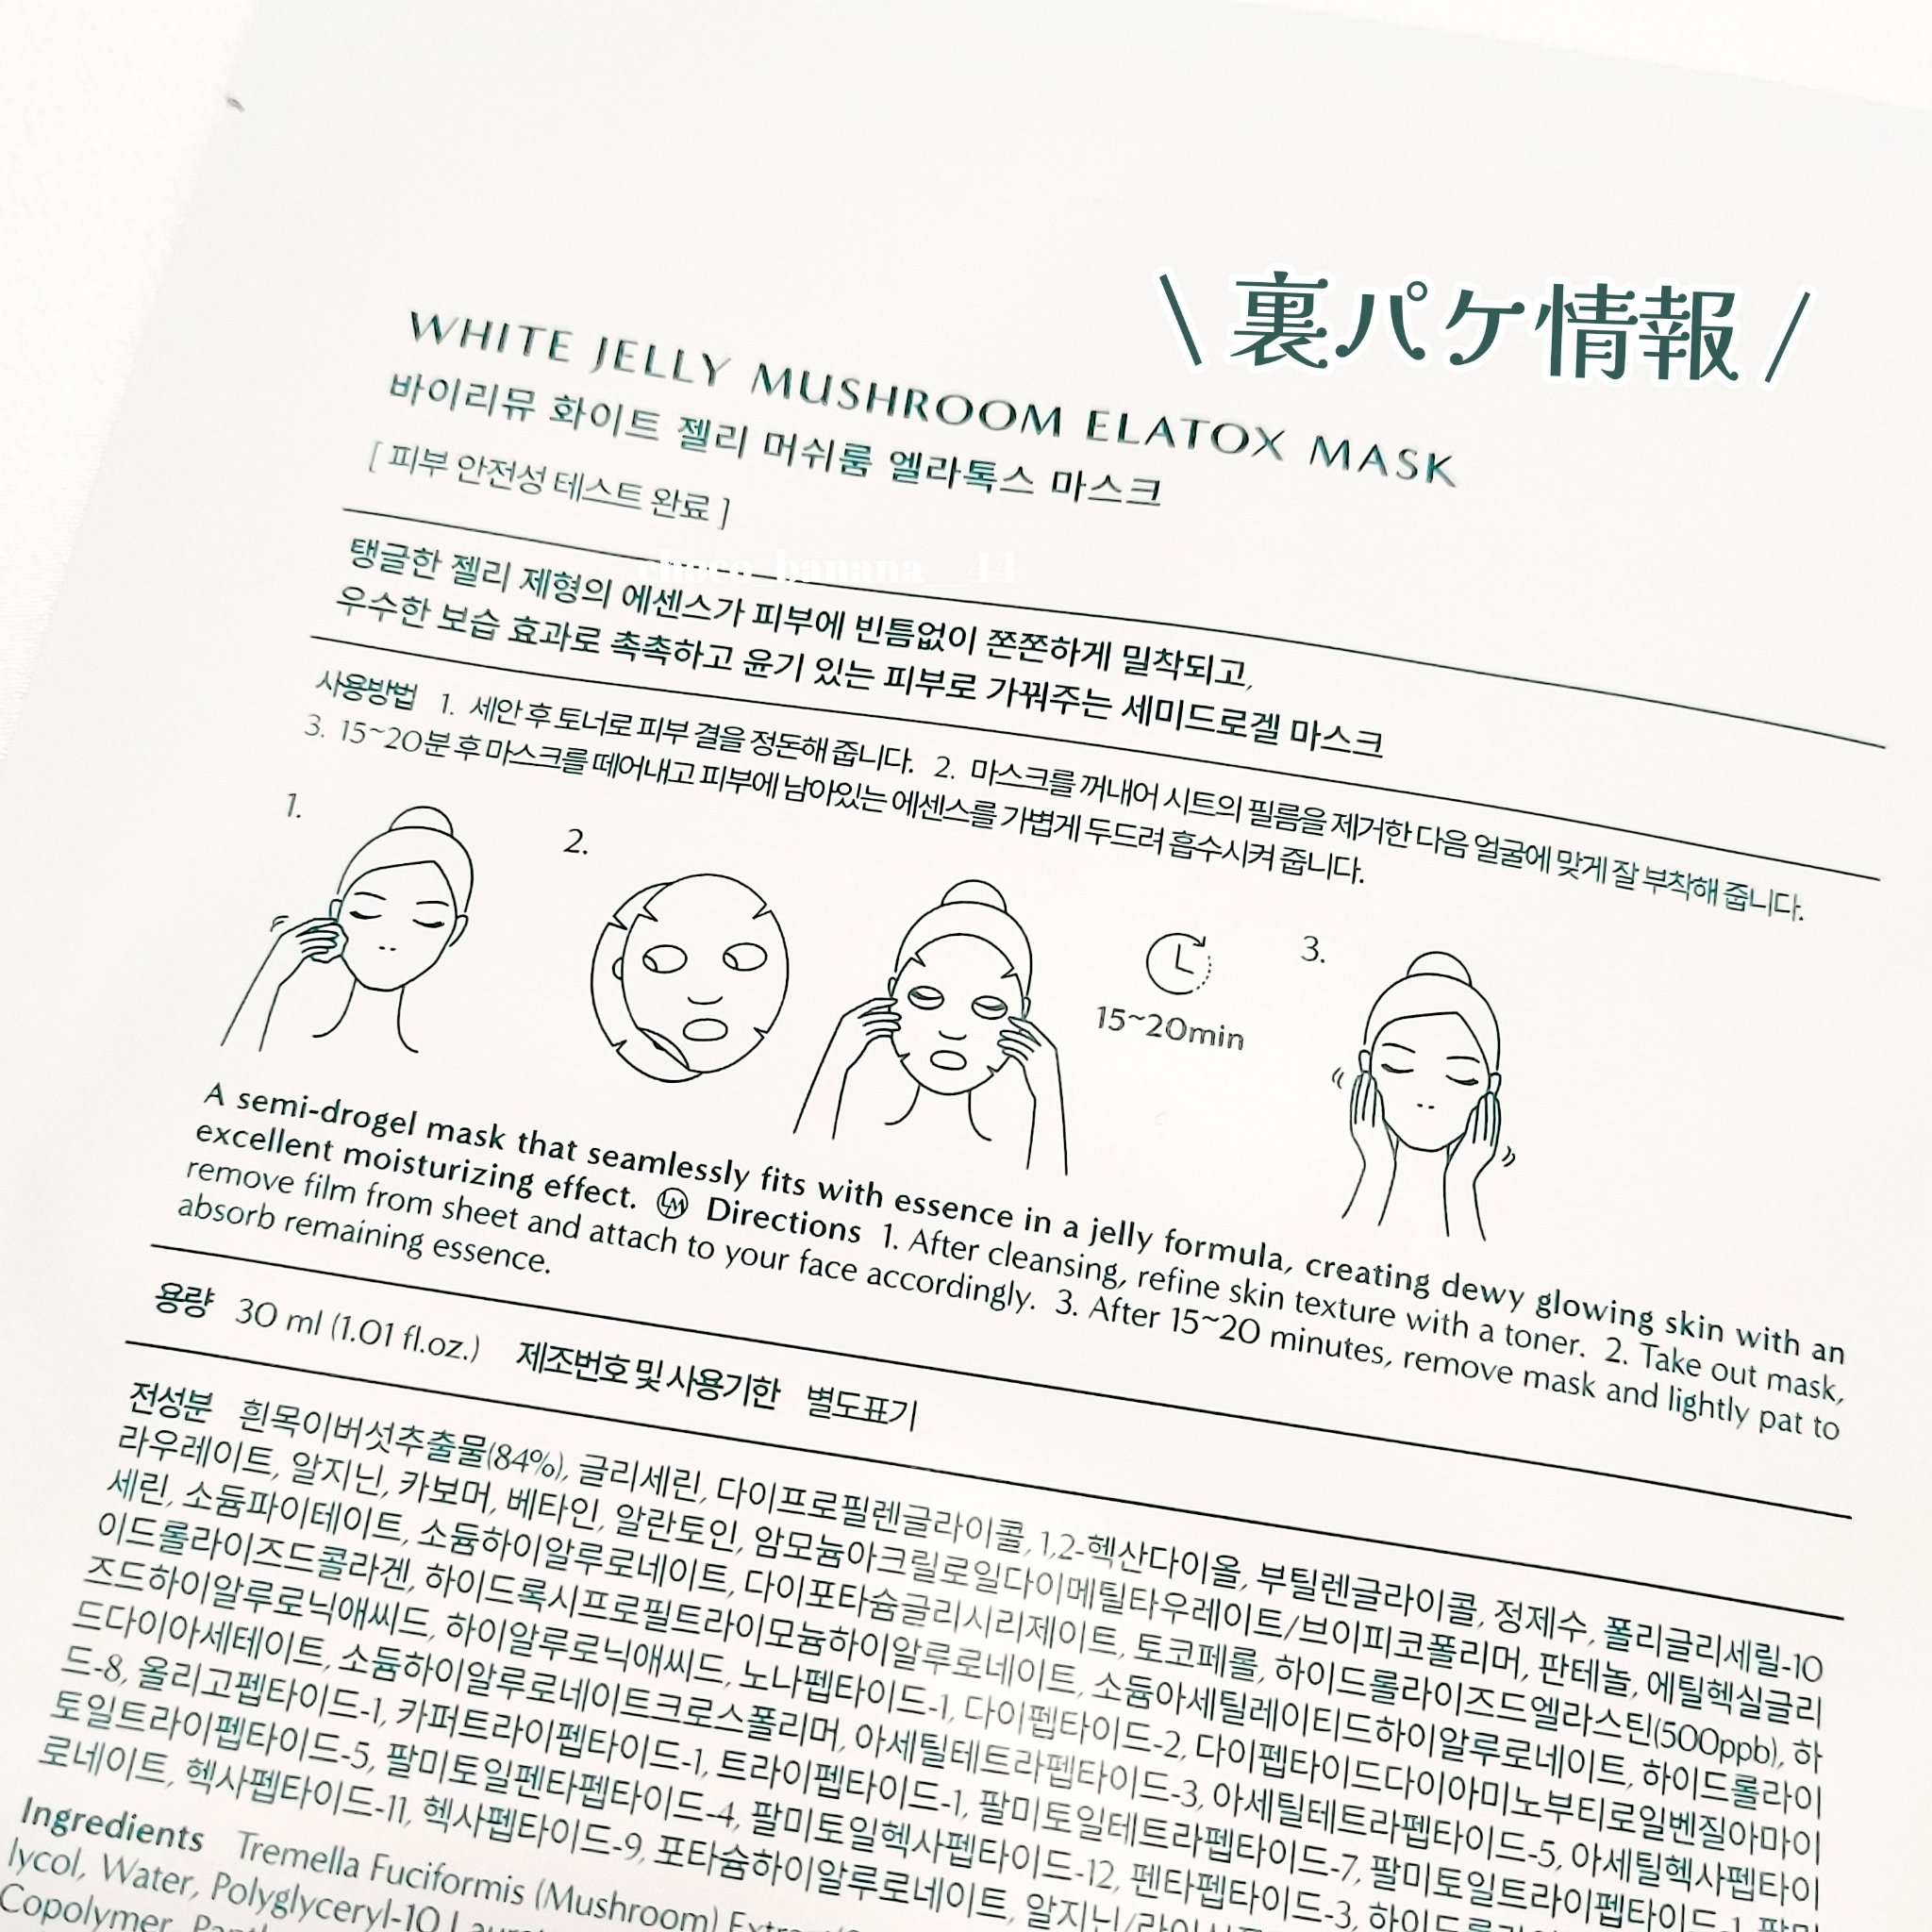 \ 裏パケ情報 /
WHITE JELLY MUSHROOM ELATOX MASK
바이리뮤 화이트 젤리 머쉬룸 엘라톡스 마스크
[ 피부 안전성 테스트 완료 ]
choco_banana__44
탱글한 젤리 제형의 에센스가 피부에 빈틈없이 쫀쫀하게 밀착되고,
우수한 보습 효과로 촉촉하고 윤기 있는 피부로 가꿔주는 세미드로겔 마스크
사용방법 1. 세안 후 토너로 피부 결을 정돈해 줍니다. 2. 마스크를 꺼내어 시트의 필름을 제거한 다음 얼굴에 맞게 잘 부착해 줍니다.
3. 15~20분 후 마스크를 떼어내고 피부에 남아있는 에센스를 가볍게 두드려 흡수시켜 줍니다.
1.
2.
15~20min
3.
A semi-drogel mask that seamlessly fits with essence in a jelly formula, creating dewy glowing skin with an
excellent moisturizing effect. LM Directions 1. After cleansing, refine skin texture with a toner. 2. Take out mask,
remove film from sheet and attach to your face accordingly. 3. After 15~20 minutes, remove mask and lightly pat to
absorb remaining essence.
용량 30 ml (1.01 fl.oz.) 제조번호 및 사용기한 별도표기
전성분 흰목이버섯추출물(84%), 글리세린, 다이프로필렌글라이콜, 1,2-헥산다이올, 부틸렌글라이콜, 정제수, 폴리글리세릴-10
라우레이트, 알지닌, 카보머, 베타인, 알란토인, 암모늄아크릴로일다이메틸타우레이트/브이피코폴리머, 판테놀, 에틸헥실글리
세린, 소듐파이테이트, 소듐하이알루로네이트, 다이포타슘글리시리제이트, 토코페롤, 하이드롤라이즈드엘라스틴(500ppb), 하
이드롤라이즈드콜라겐, 하이드록시프로필트라이모늄하이알루로네이트, 소듐아세틸레이티드하이알루로네이트, 하이드롤라이
즈드하이알루로닉애씨드, 하이알루로닉애씨드, 노나펩타이드-1, 다이펩타이드-2, 다이펩타이드다이아미노부티로일벤질아마이
드다이아세테이트, 소듐하이알루로네이트크로스폴리머, 아세틸테트라펩타이드-3, 아세틸테트라펩타이드-5, 아세틸헥사펩타이
드-8, 올리고펩타이드-1, 카퍼트라이펩타이드-1, 트라이펩타이드-1, 팔미토일테트라펩타이드-7, 팔미토일트라이펩타이드-1, 팔미
토일트라이펩타이드-5, 팔미토일펜타펩타이드-4, 팔미토일헥사펩타이드-12, 펜타펩타이드-3,
로네이트, 헥사펩타이드-11, 헥사펩타이드-9, 포타슘하이알루로네이트,
Ingredients Tremella Fuciformis (Mushroom)
lycol, Water, Polyglyceryl-10
Copolymer,